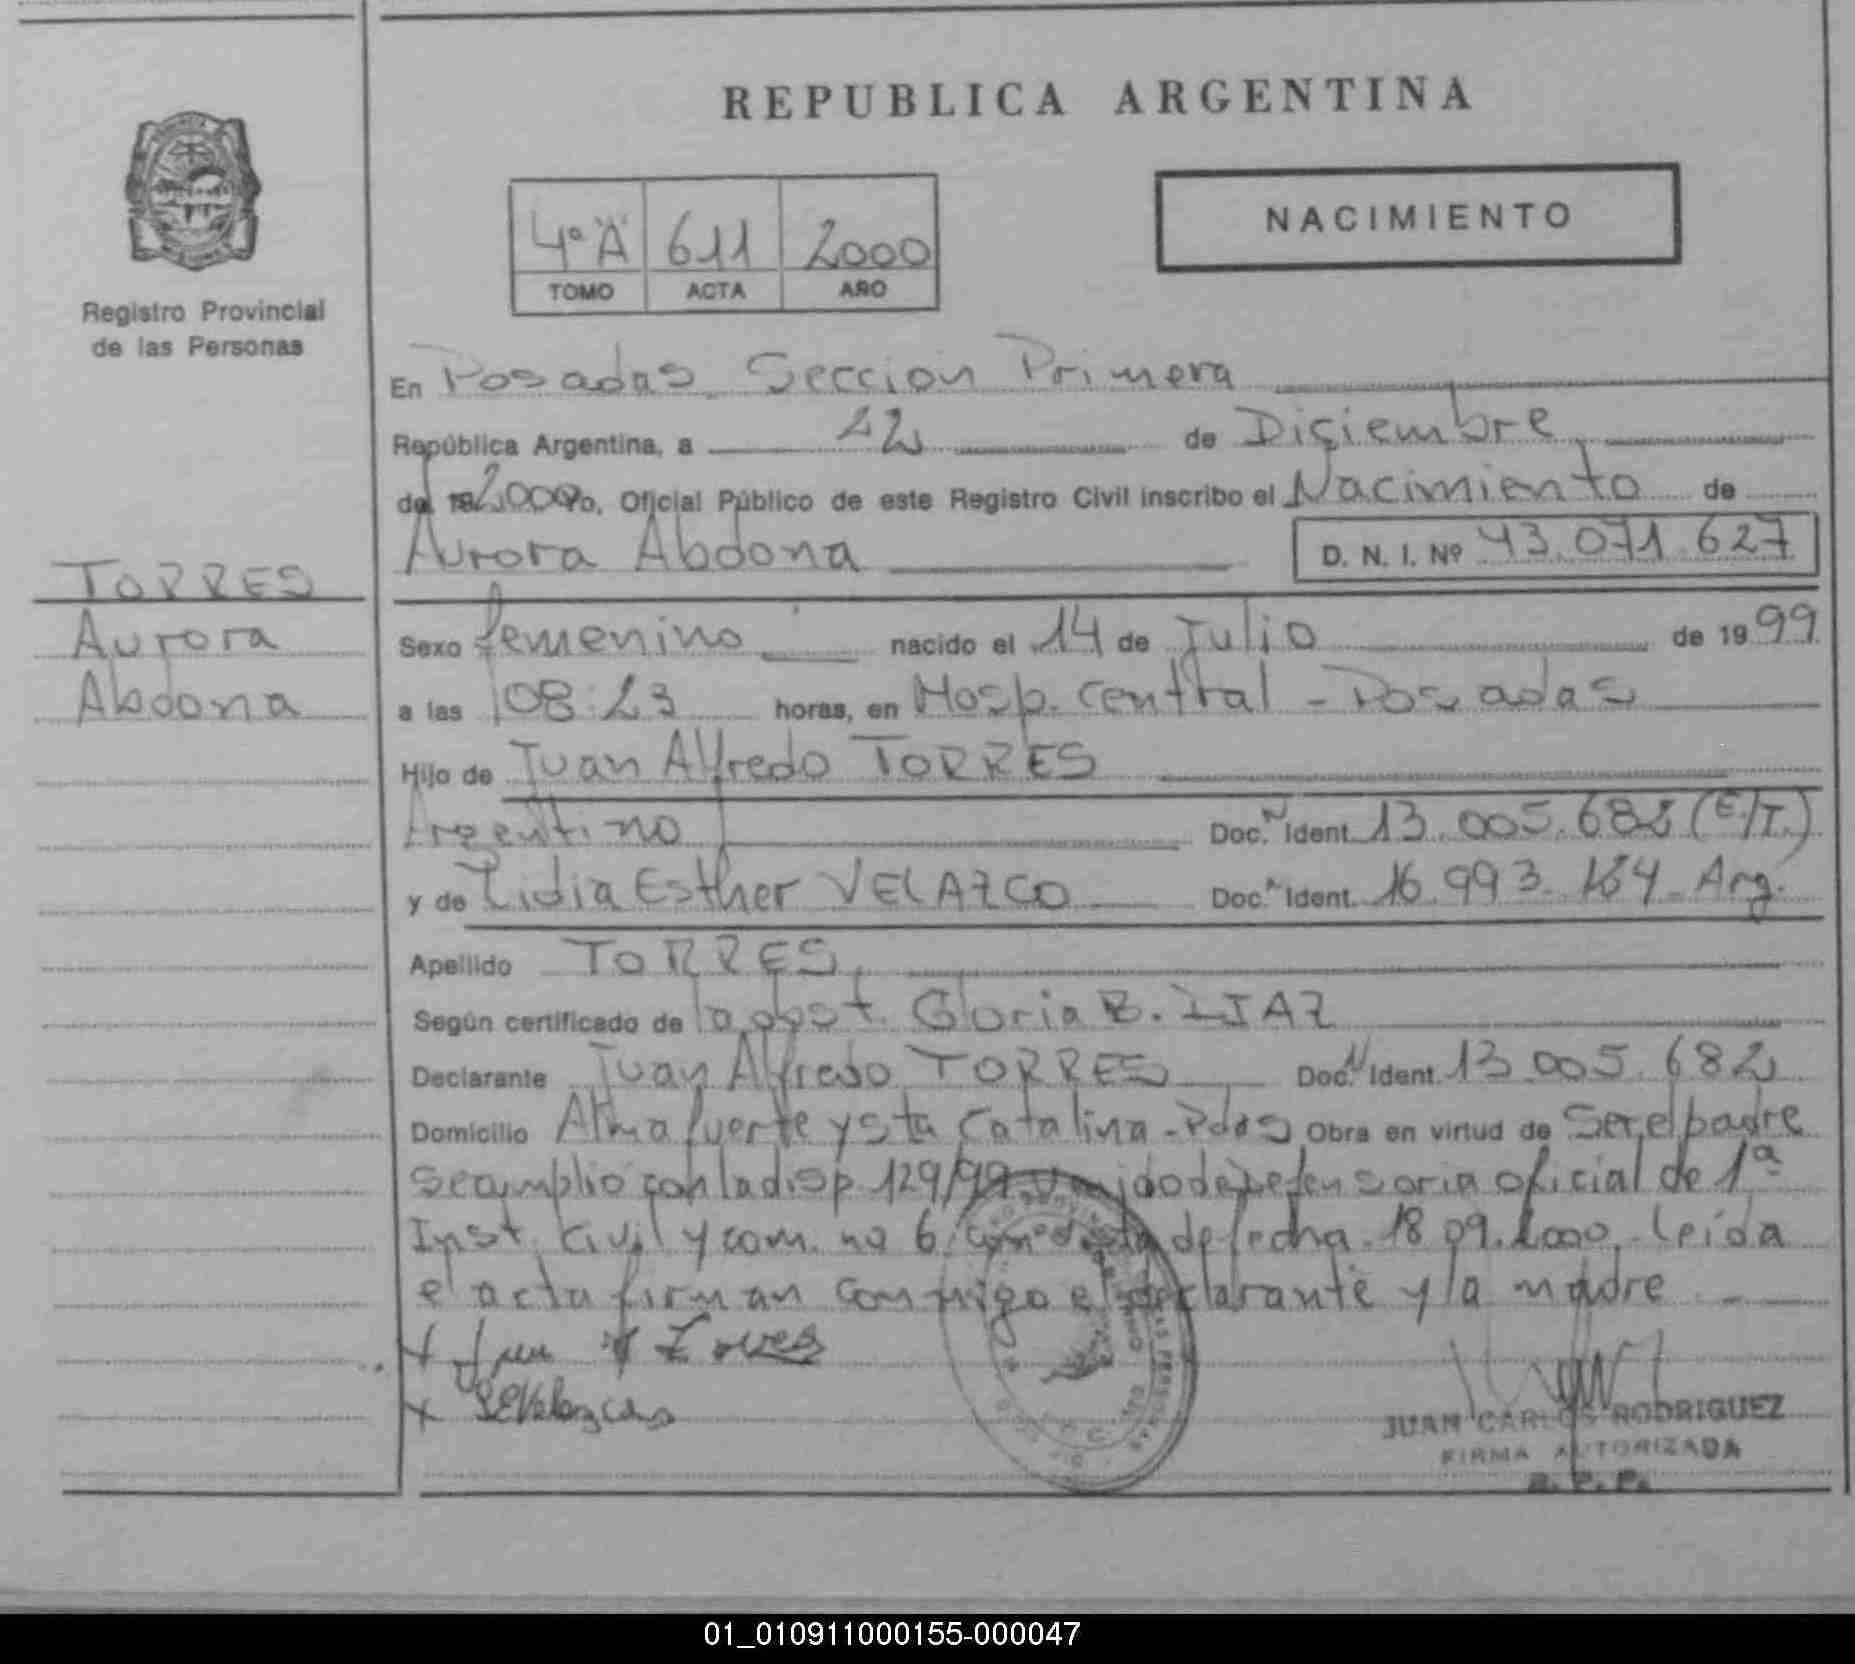 REPUBLICA ARGENTINA
NACIMIENTO
4º "A" 611 2000
TOMO ACTA AÑO
Registro Provincial
de las Personas
En Posadas Sección Primera
República Argentina, a 22 de Diciembre
de 2000 yo, Oficial Público de este Registro Civil inscribo el Nacimiento de
Aurora Abdona D. N. I. Nº 43.071.627
TORRES
Aurora
Abdona
Sexo femenino nacido el 14 de Julio de 1999
a las 08:23 horas, en Hosp. Central - Posadas
Hijo de Juan Alfredo TORRES
Argentino Doc. N Ident. 13.005.682 (E/T.)
y de Lidia Esther VELAZCO Doc. N Ident. 16.993.164 Arg.
Apellido TORRES
Según certificado de la obst. Gloria B. DIAZ
Declarante Juan Alfredo TORRES Doc. N Ident. 13.005.682
Domicilio Almafuerte y Sta Catalina - Pdas Obra en virtud de Ser el padre
Se cumplió con la disp 129/99 defensoria oficial de 1ª
Inst. Civil y com. no 6 de fecha 18.09.2000. Leida
el acta firman conmigo el declarante y la madre
JUAN CARLOS RODRIGUEZ
FIRMA AUTORIZADA
R. P. P.
01_010911000155-000047